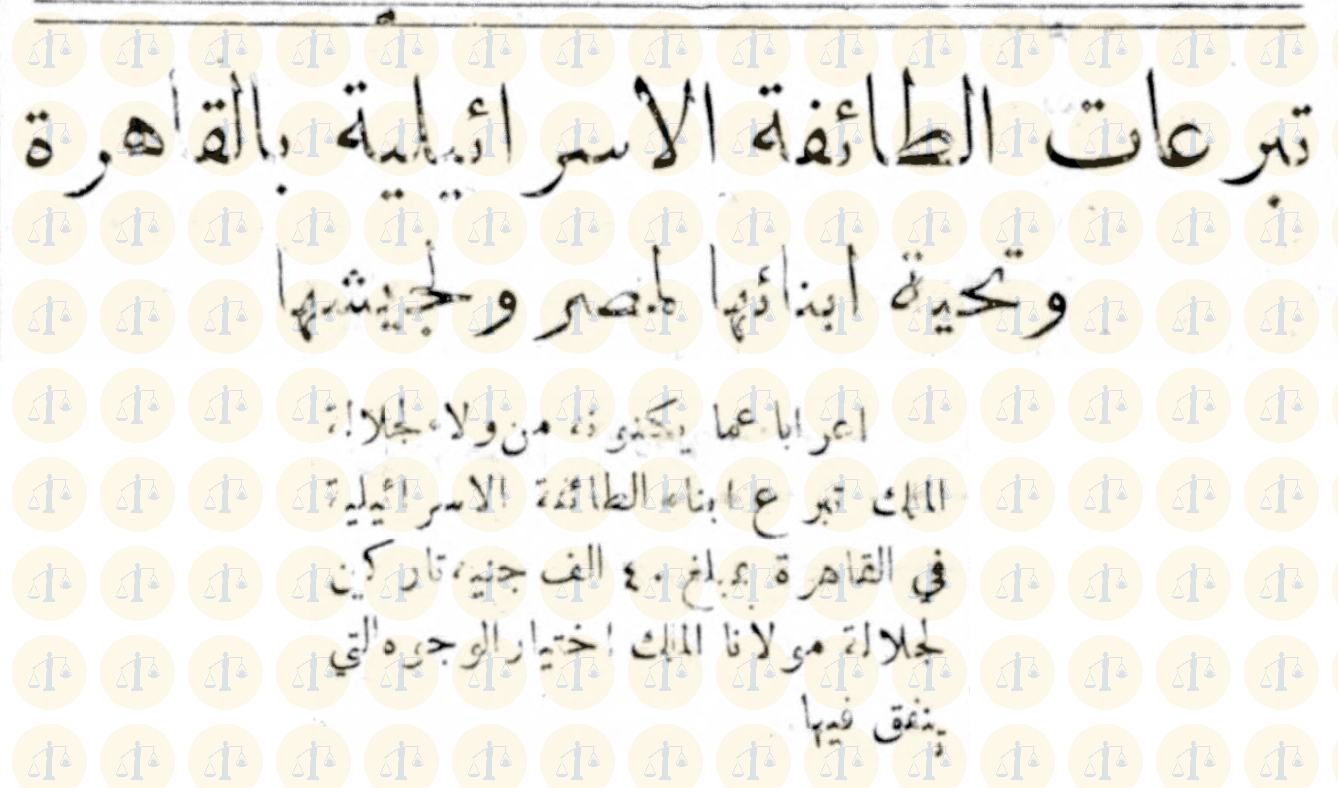 تبرعات الطائفة الاسرائيلية بالقاهرة
وتحية ابنائها لمصر ولجيشها
اعرابا عما يكنونه من ولاء لجلالة
الملك تبرع ابناء الطائفة الاسرائيلية
في القاهرة بمبلغ ٤٠ الف جنيه، تاركين
لجلالة مولانا الملك اختيار الوجوه التي
ينفق فيها